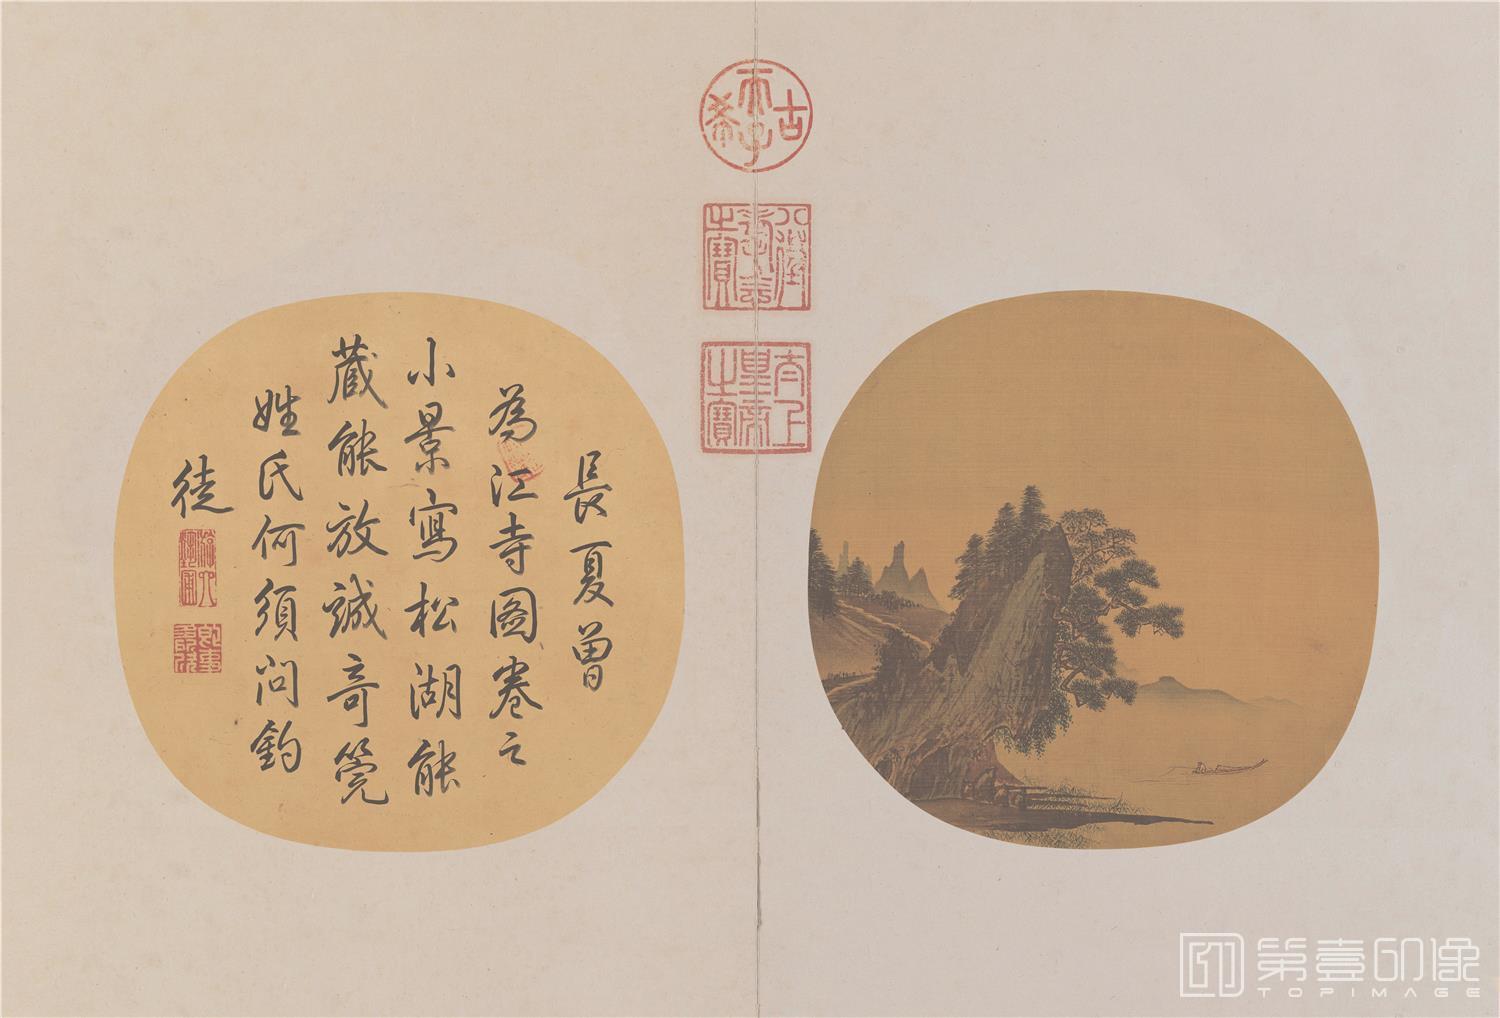 長夏曾
為江寺圖卷之
小景寫松湖能
藏能放誠奇筦
姓氏何須问釣
徒
古
天子
希
八徵
耄念
之寶
太上
皇帝
之寶
第壹印像
TOPIMAGE